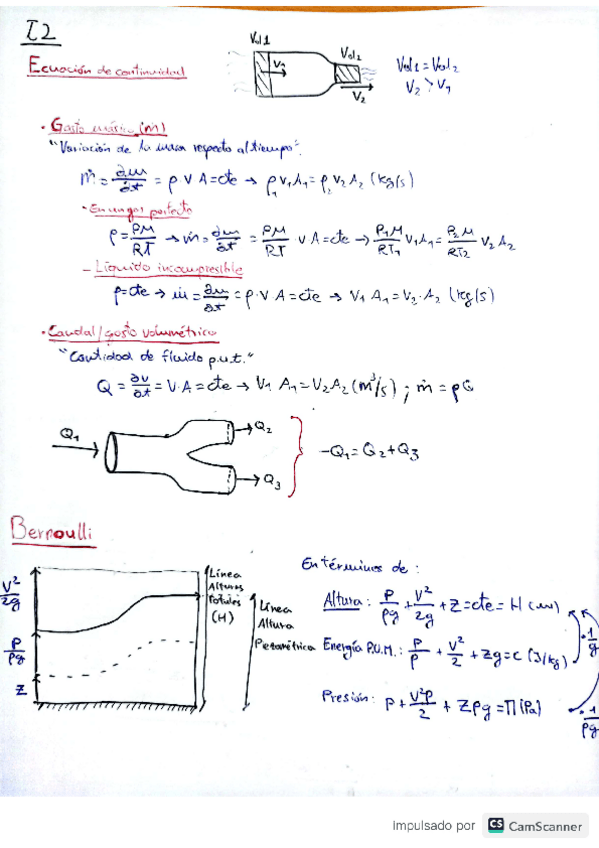 I2
Ecuación de continuidad
Vol1
Vol2
V1
V2
Vol1 = Vol2
V2 > V1
· Gasto másico (ṁ)
"Variación de la masa respecto al tiempo".
ṁ = ∂m/∂t = ρ V A = cte → ρ1 V1 A1 = ρ2 V2 A2 (kg/s)
- En un gas perfecto
ρ = PM/RT → ṁ = ∂m/∂t = PM/RT V A = cte → P1M/RT1 V1A1 = P2M/RT2 V2 A2
- Líquido incompresible
ρ = cte → ṁ = ∂m/∂t = ρ · V A = cte → V1 A1 = V2 · A2 (kg/s)
· Caudal/gasto volumétrico
"Cantidad de fluido p.u.t."
Q = ∂v/∂t = V · A = cte → V1 A1 = V2 A2 (m³/s) ; ṁ = ρQ
Q1
Q2
Q3
-Q1 = Q2 + Q3
Bernoulli
V²/2g
P/ρg
Z
Línea Alturas Totales (H)
Línea Altura
En términos de :
Altura : P/ρg + V²/2g + Z = cte = H (m)
Energía P.U.M.: P/ρ + V²/2 + Zg = C (J/kg)
Presión: P + V²ρ/2 + Zρg = Π (Pa)
· 1/g
· 1/ρg
Impulsado por CS CamScanner